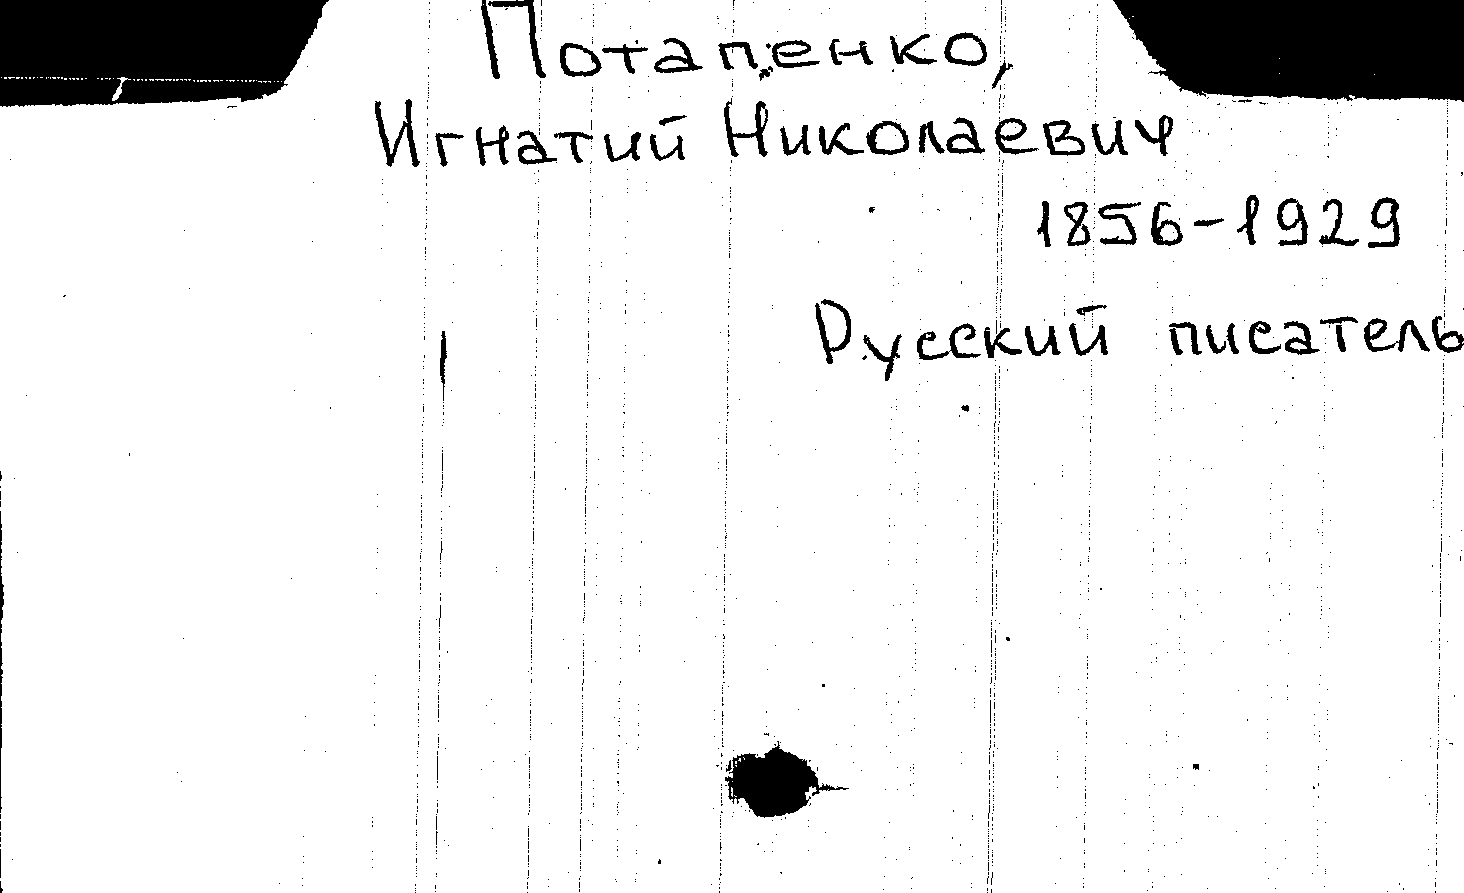 Потапенко,
Игнатий Николаевич
1856-1929
Русский писатель